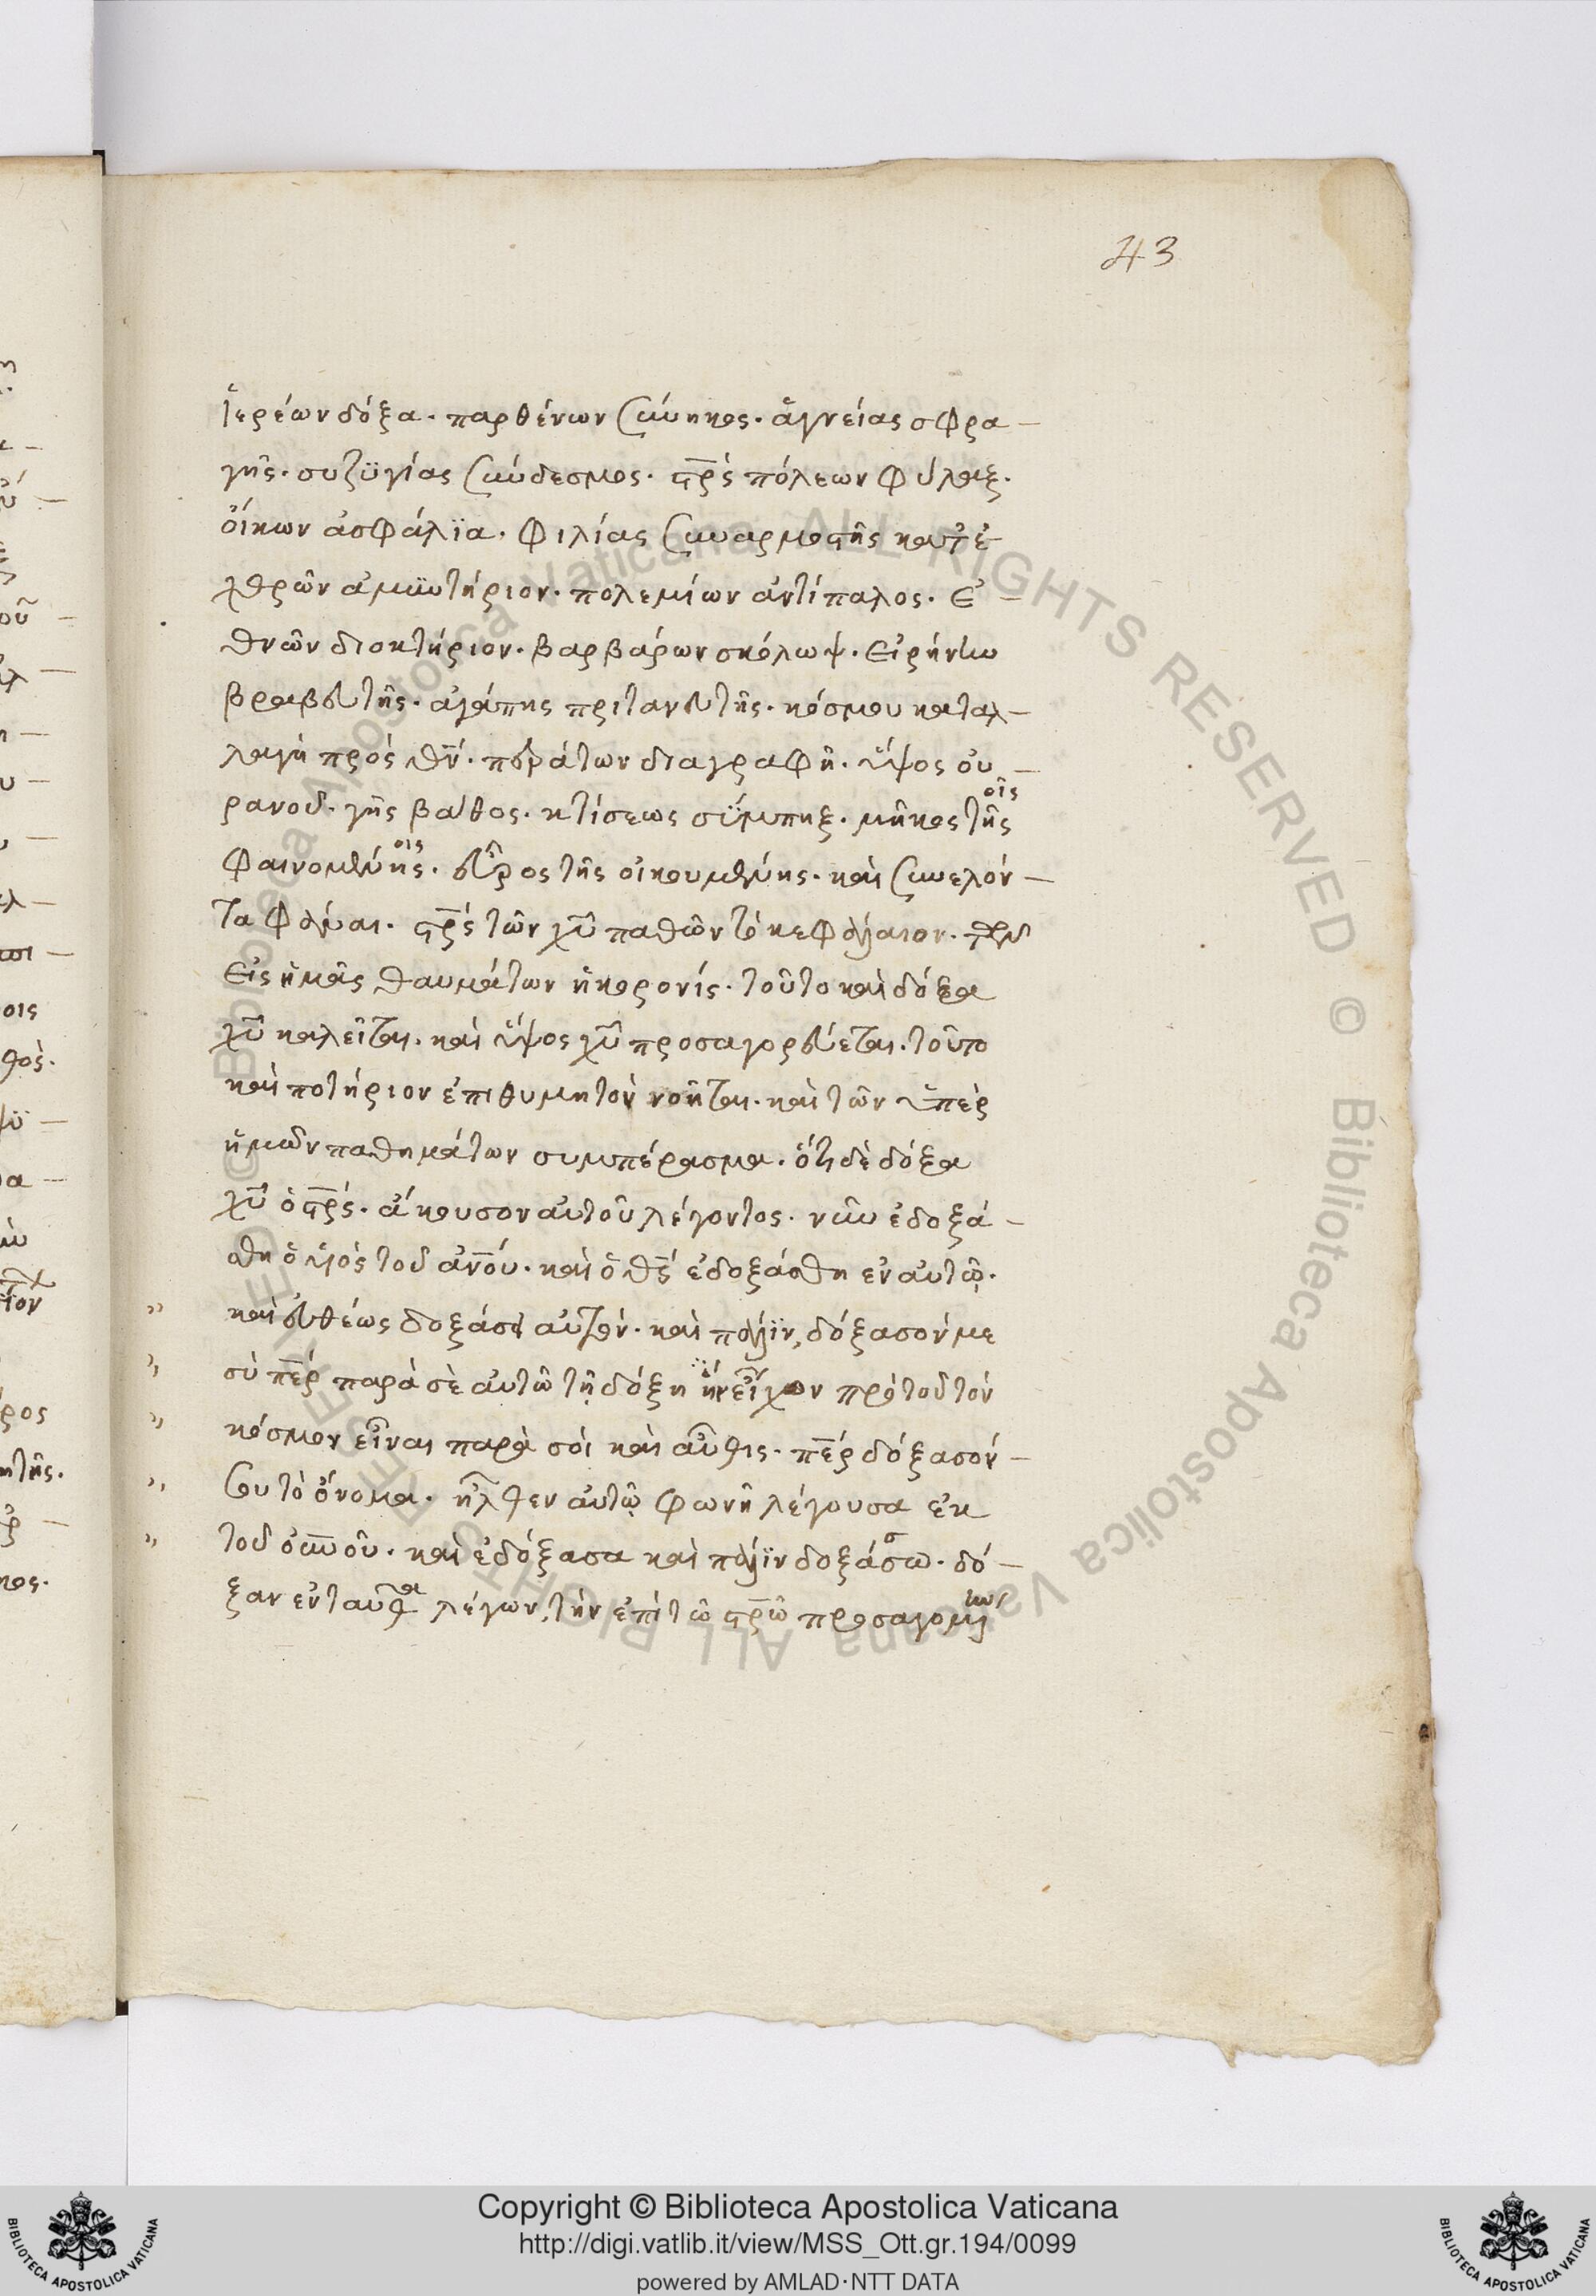 43
ἱερέων δόξα. παρθένων σύνηκος. ἁγνείας σφρα-
γῆς. συζϋγίας σύνδεσμος. σ̅ρ̅ς πόλεων φύλαξ.
οἴκων ἀσφάλϊα. φιλίας συναρμοστῆς κατ ἐ
χθρῶν ἀμϋντήριον. πολεμίων ἀντίπαλος. ἐ-
θνῶν διοκτήριον. βαρβάρων σκόλωψ. εἰρήνην
βραβευτῆς. ἀγάπης πριτανευτῆς. κόσμου καταλ-
λαγὴ πρὸς θ̅ν. περάτων διαγραφῆ. ὕψος οὐ-
ρανοῦ. γῆς βάθος. κτίσεως σύμπηξ. μῆκος τῆς
οῖς
φαινομένης. εὖρος τῆς οἰκουμένης. καὶ συνελόν-
οις
τα φάναι. σ̅ρ̅ς τῶν χ̅υ παθῶν τὸ κεφάλαιον. τῶν
εἰς ἡμᾶς θαυμάτων ἡ κορονίς. τοῦτο καὶ δόξα
χ̅υ καλεῖται. καὶ ὕψος χ̅υ προσαγορεύεται. τοῦτο
καὶ ποτήριον ἐπιθυμητὸν νοῆται. καὶ τῶν ὑπὲρ
ἡμῶν παθημάτων συμπέρασμα. ὅτι δὲ δόξα
χ̅υ ὁ σ̅ρ̅ς. ἄκουσον αὐτοῦ λέγοντος. νῦν ἐδοξά-
σθη ὁ υἱὸς τοῦ ἀ̅ν̅ου. καὶ ὁ θ̅ς ἐδοξάσθη ἐν αὐτῷ.
" καὶ εὐθέως δοξάσει αὐτόν. καὶ πάλϊν, δόξασόν με
" σὺ π̅ε̅ρ παρὰ σὲ αὐτῶ τῇ δόξη ἣν εἶχον πρὸ τοῦ τὸν
" κόσμον εἶναι παρὰ σοὶ καὶ αὖθις. π̅ε̅ρ δόξασόν-
" σου τὸ ὄνομα. ἦλθεν αὐτῷ φωνὴ λέγουσα ἐκ
" τοῦ ο̅υ̅νοῦ. καὶ ἐδόξασα καὶ πάλϊν δοξάσω. δό-
ξαν ἐνταῦθα λέγων, τὴν ἐπὶ τῶ σ̅ρ̅ῶ
Copyright © Biblioteca Apostolica Vaticana
http://digi.vatlib.it/view/MSS_Ott.gr.194/0099
powered by AMLAD·NTT DATA
BIBLIOTECA APOSTOLICA VATICANA
BIBLIOTECA APOSTOLICA VATICANA
© Biblioteca Apostolica Vaticana ALL RIGHTS RESERVED © Biblioteca Apostolica Vaticana ALL RIGHTS RESERVED